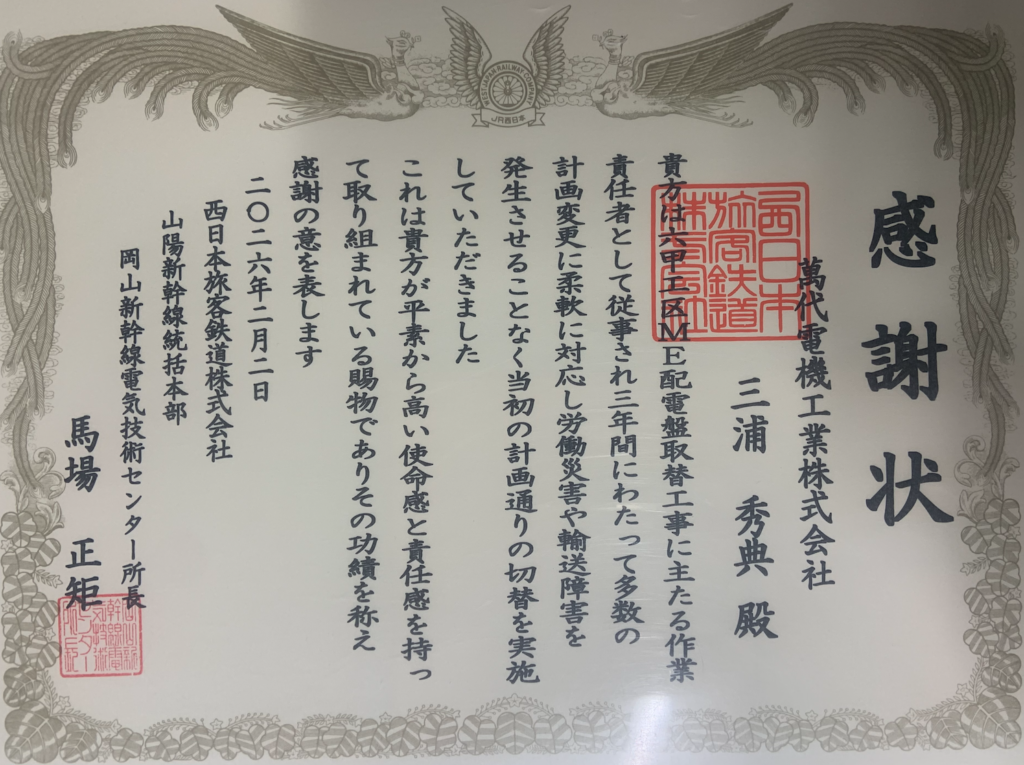 感謝状
萬代電機工業株式会社
三浦 秀典 殿
貴方は六甲工区ME配電盤取替工事に主たる作業
責任者として従事され三年間にわたって多数の
計画変更に柔軟に対応し労働災害や輸送障害を
発生させることなく当初の計画通りの切替を実施
していただきました
これは貴方が平素から高い使命感と責任感を持っ
て取り組まれている賜物でありその功績を称え
感謝の意を表します
二〇二六年二月二日
西日本旅客鉄道株式会社
山陽新幹線統括本部
岡山新幹線電気技術センター所長
馬場 正矩
JR西日本
西日本
旅客鉄道
株式会社